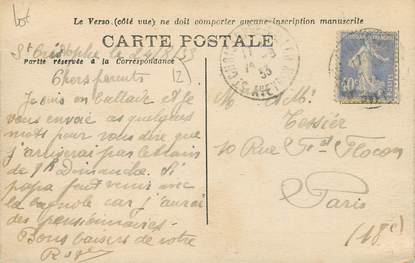 Lot
Le Verso (côté vue) ne doit comporter aucune inscription manuscrite
CARTE POSTALE
Partie réservée à la Correspondance
St Cristophe le 24/8/33
Chers parents
Je suis en ballade et je
vous envoie ces quelques
mots pour vous dire que
j'arriverai par le train
de 1h Dimanche. Si
papa peut venir avec
la bagnole car j'aurai
des pensionnaires.
Bons baisers de votre
M et Mme
Tessier
10 Rue Fd Flocon
Paris
(18e)